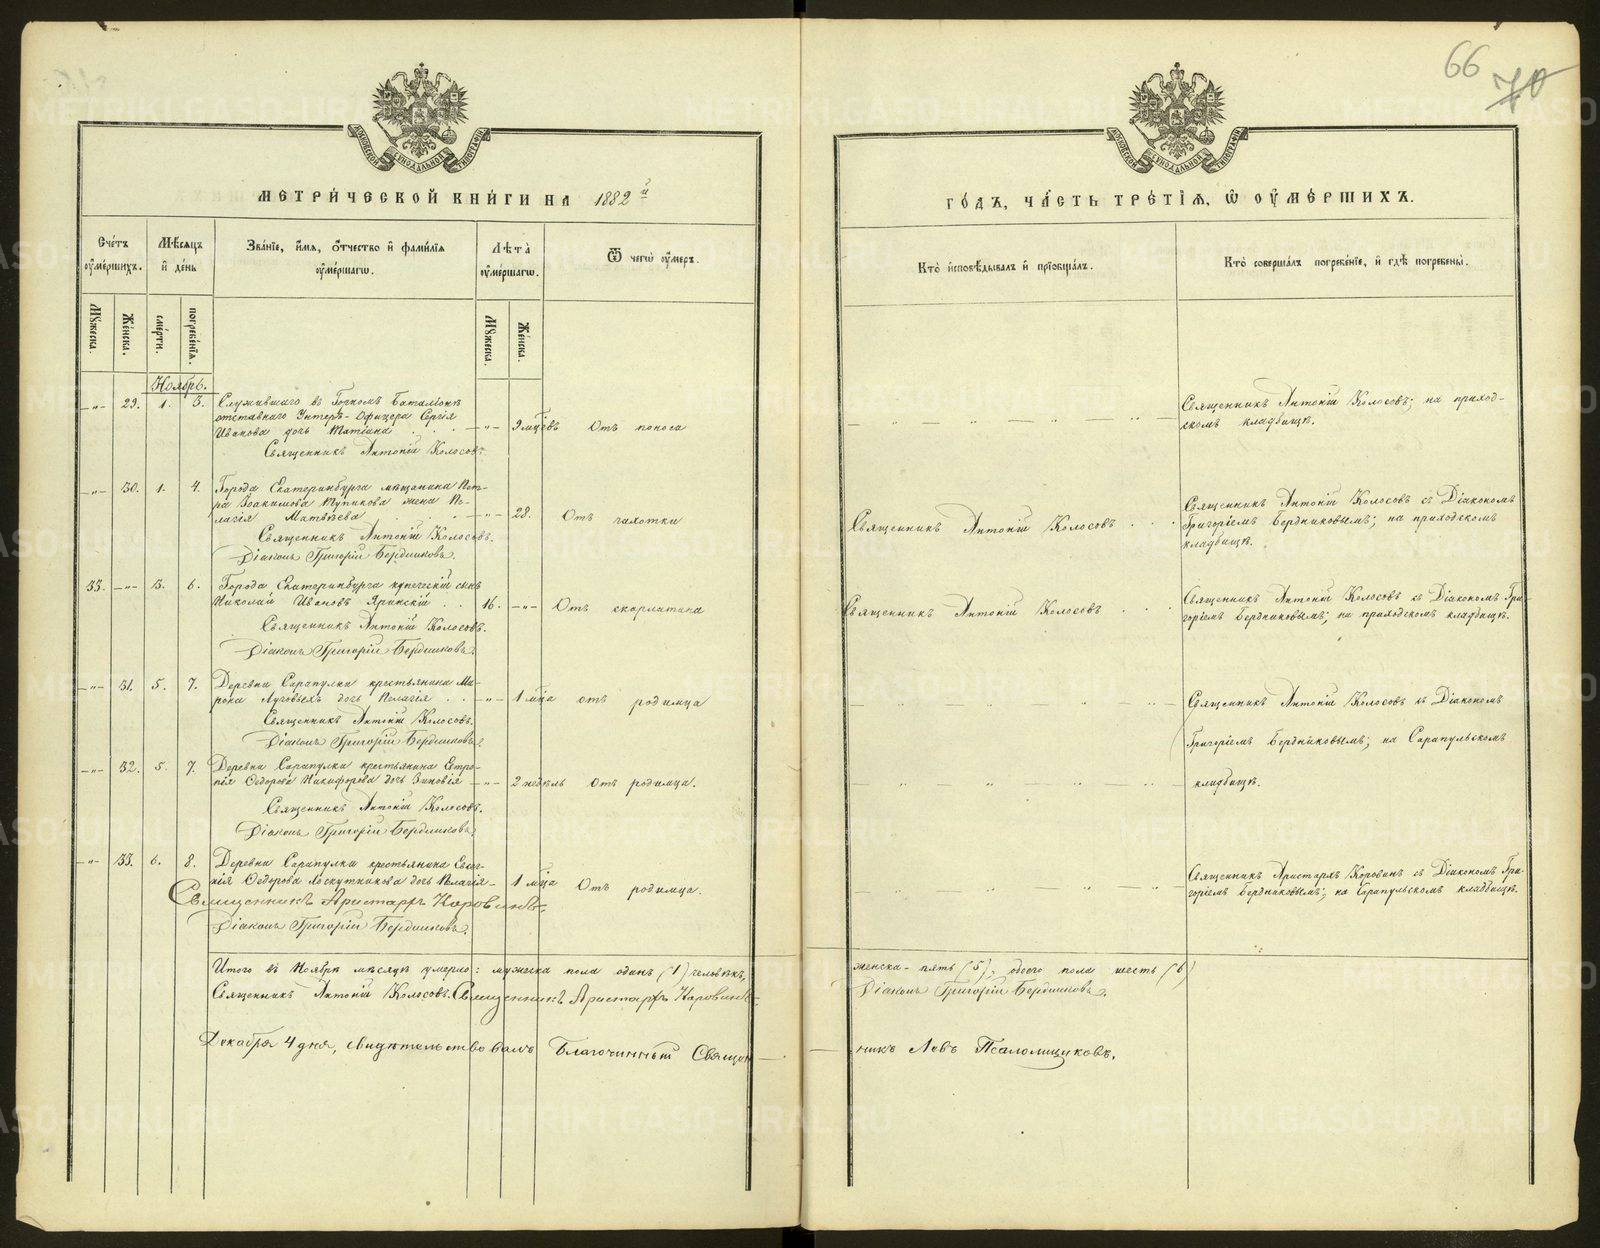 66
70
МЕТРИ́ЧЕСКОЙ КНИ́ГИ НА 1882й
ГО́ДЪ, ЧА́СТЬ ТРЕ́ТІѦ, Ѡ ОУМЕ́РШИХЪ.
Сче́тъ оуме́ршихъ.
Мѣ́сѧцъ и де́нь
Зва́нїе, и́мѧ, ѻ҆́тчество и фами́лїѧ оуме́ршагѡ.
Лѣ́та оуме́ршагѡ.
Ѿ чегѡ̀ оу́меръ.
Кто̀ исповѣ́дывалъ и прїобща́лъ.
Кто̀ соверша́лъ погребе́нїе, и гдѣ̀ погребены̀.
Мꙋ́жеска.
Же́нска.
сме́рти.
погребе́нїѧ.
Мꙋ́жеска.
Же́нска.
Ноябрь.
—"— 29. 1. 3. Служившаго въ Горномъ Баталіонѣ
отставнаго Унтеръ-Офицера Сергія
Иванова дочь Татіана —"— 9 мцевъ Отъ поноса
Священникъ Антоній Колосовъ.
Священникъ Антоній Колосовъ; на приход-
скомъ кладбищѣ.
—"— 30. 1. 4. Города Екатеринбурга мѣщанина Пет-
ра Іоакимова жена Пе-
лагія Матвѣева —"— 28. Отъ чахотки
Священникъ Антоній Колосовъ.
Діаконъ Григорій Бердниковъ.
Священникъ Антоній Колосовъ
Священникъ Антоній Колосовъ съ Діакономъ
Григоріемъ Бердниковымъ; на приходскомъ
кладбищѣ.
33. —"— 3. 6. Города Екатеринбурга купеческій сынъ
Николай Ивановъ Яринскій 16. —"— Отъ скарлатина
Священникъ Антоній Колосовъ.
Діаконъ Григорій Бердниковъ.
Священникъ Антоній Колосовъ
Священникъ Антоній Колосовъ съ Діакономъ Гри-
горіемъ Бердниковымъ; на приходскомъ кладбищѣ.
—"— 31. 5. 7. Деревни Сарапулки крестьянина Ми-
рона Луговыхъ дочь Пелагія —"— 1 мца отъ родимца
Священникъ Антоній Колосовъ.
Діаконъ Григорій Бердниковъ.
Священникъ Антоній Колосовъ съ Діакономъ
Григоріемъ Бердниковымъ; на Сарапульскомъ
кладбищѣ.
—"— 32. 5. 7. Деревни Сарапулки крестьянина Евтро-
пія Ѳедорова Никифорова дочь Зиновія —"— 2 недѣль Отъ родимца.
Священникъ Антоній Колосовъ.
Діаконъ Григорій Бердниковъ.
—"— 33. 6. 8. Деревни Сарапулки крестьянина Евге-
нія Ѳедорова Лоскутникова дочь Пелагія — 1 мца Отъ родимца.
Священникъ Аристархъ Коровинъ.
Діаконъ Григорій Бердниковъ.
Священникъ Аристархъ Коровинъ съ Діакономъ Гри-
горіемъ Бердниковымъ; на Сарапульскомъ кладбищѣ.
Итого въ Ноябрѣ мѣсяцѣ умерло: мужеска пола одинъ (1) человѣкъ,
женска - пять (5), обоего пола шесть (6)
Священникъ Антоній Колосовъ. Священникъ Аристархъ Коровинъ.
Діаконъ Григорій Бердниковъ.
Декабря 4 дня, свидѣтельствовалъ Благочинный Священ-
никъ Левъ Псаломщиковъ.
METRIKI.GASO-URAL.RU